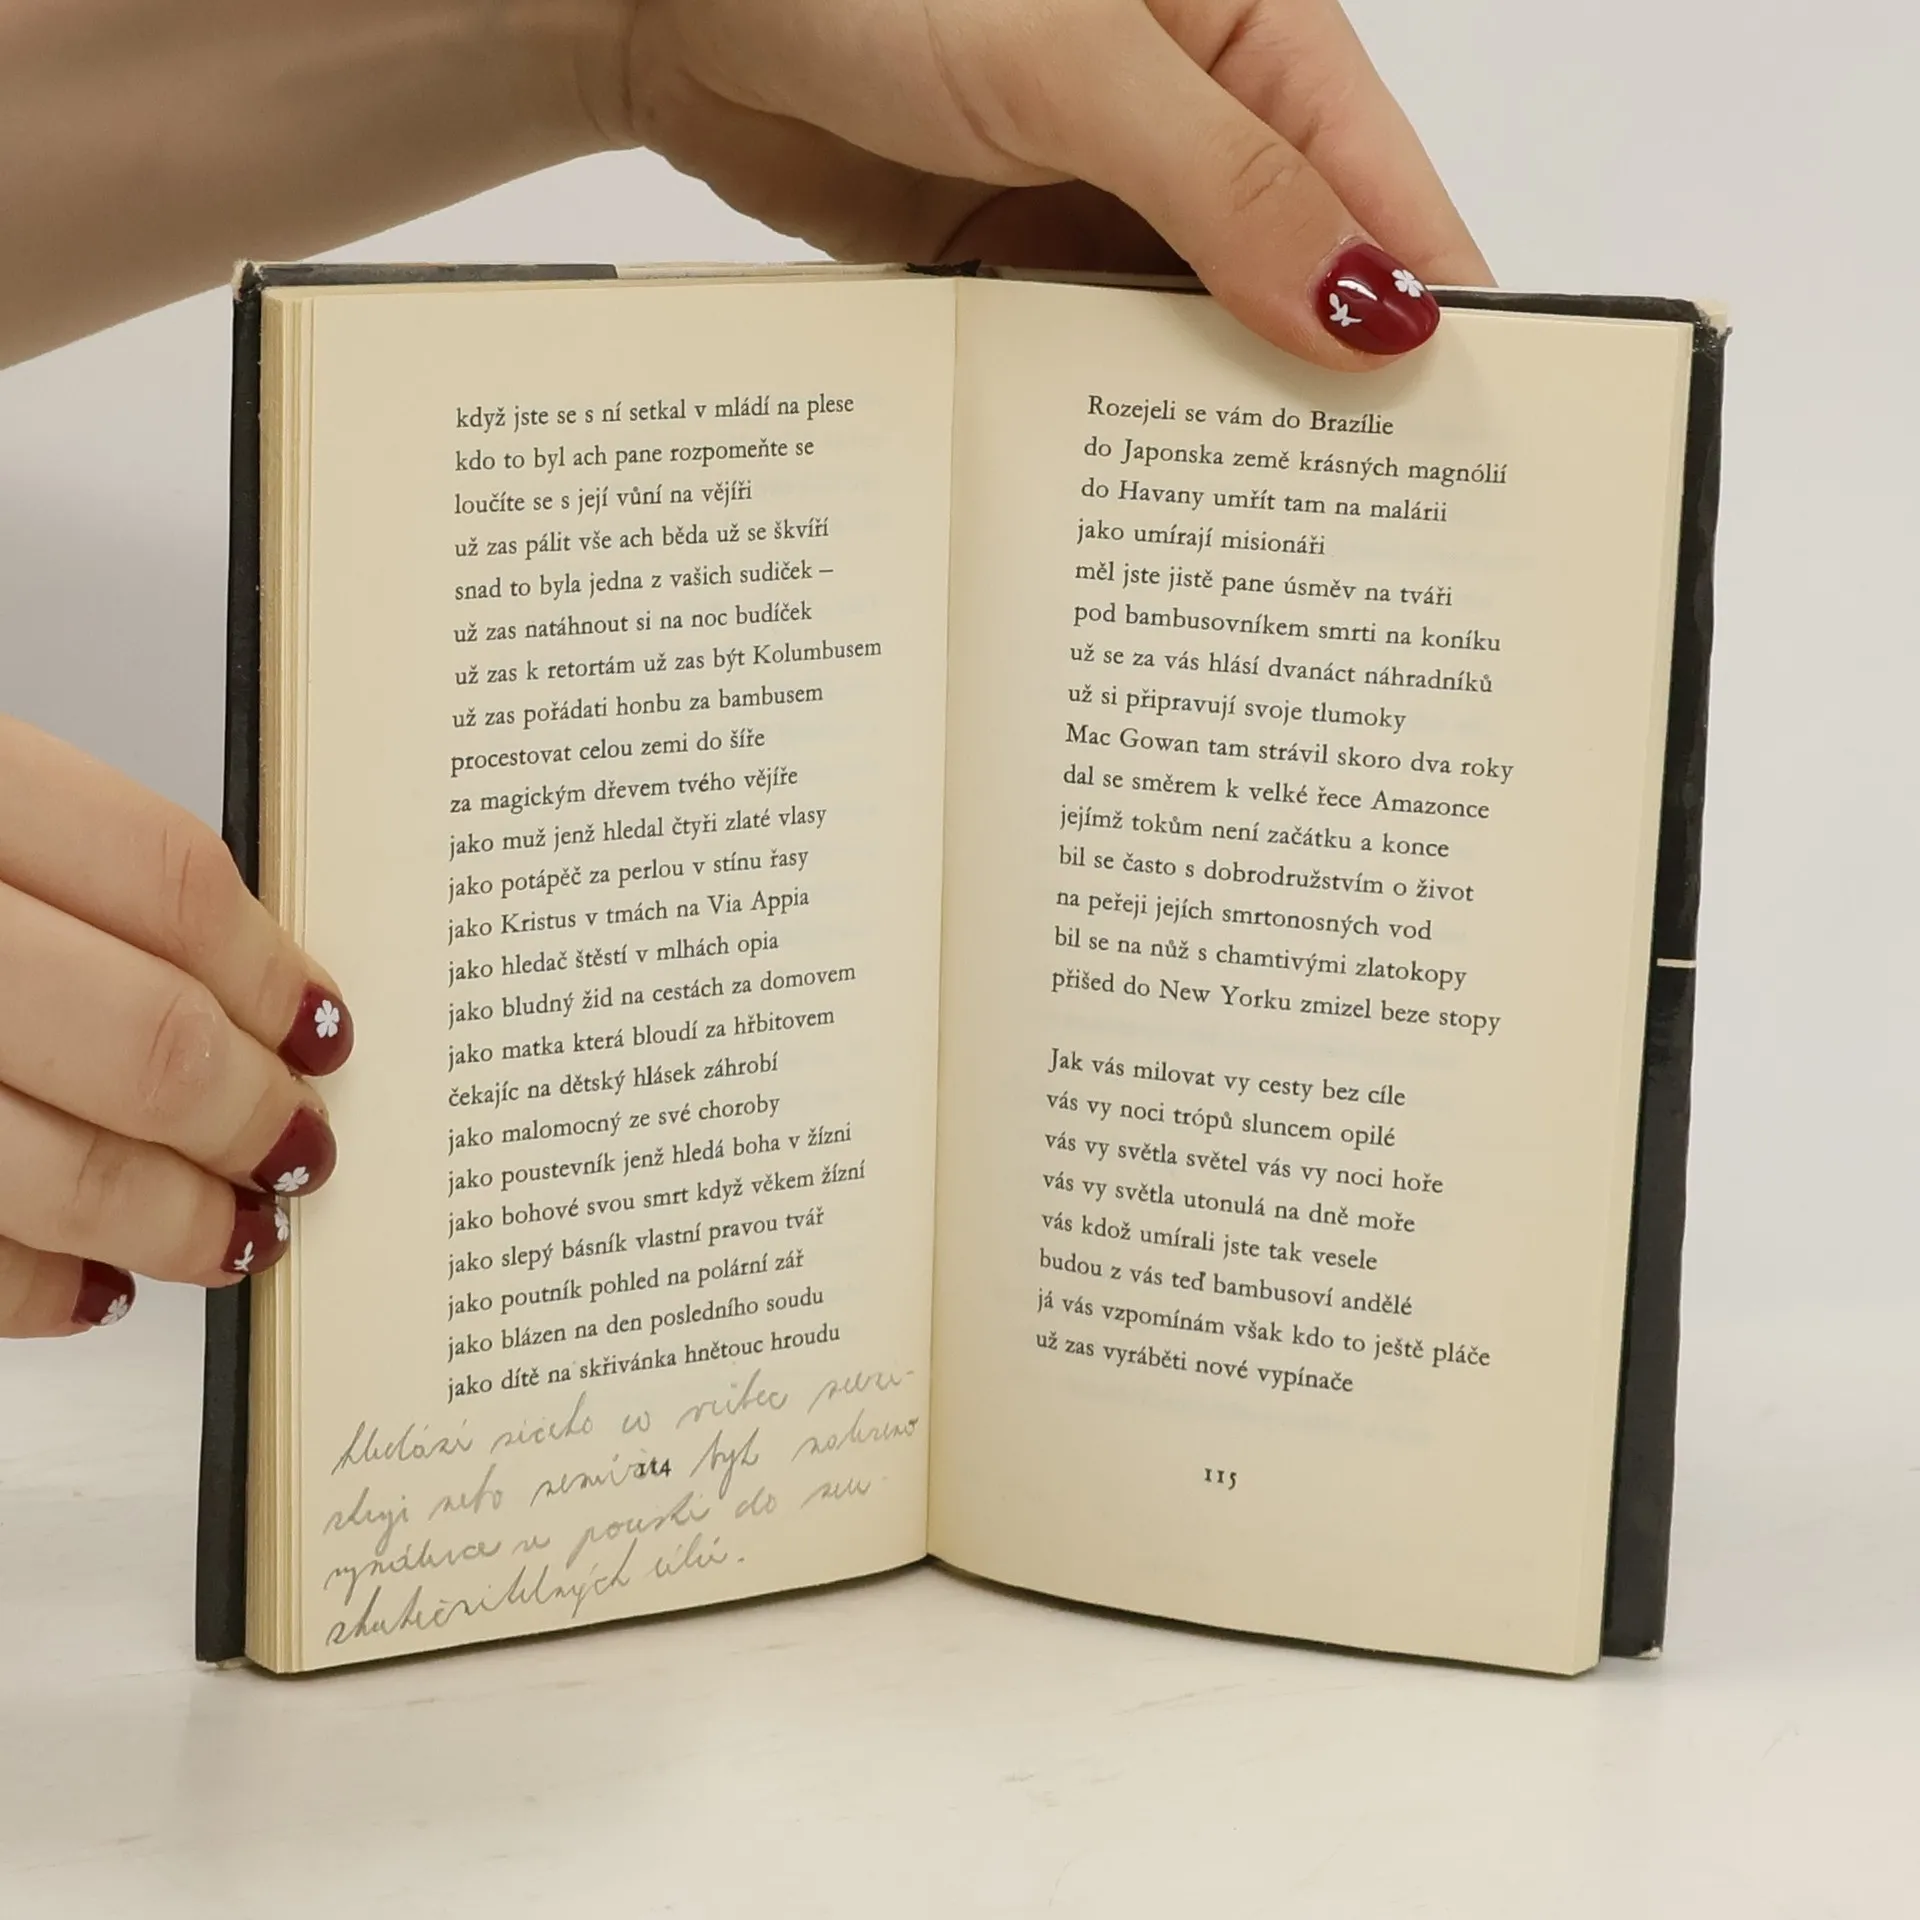 když jste se s ní setkal v mládí na plese
kdo to byl ach pane rozpomeňte se
loučíte se s její vůní na vějíři
už zas pálit vše ach běda už se škvíří
snad to byla jedna z vašich sudiček –
už zas natáhnout si na noc budíček
už zas k retortám už zas být Kolumbusem
už zas pořádati honbu za bambusem
procestovat celou zemi do šíře
za magickým dřevem tvého vějíře
jako muž jenž hledal čtyři zlaté vlasy
jako potápěč za perlou v stínu řasy
jako Kristus v tmách na Via Appia
jako hledač štěstí v mlhách opia
jako bludný žid na cestách za domovem
jako matka která bloudí za hřbitovem
čekajíc na dětský hlásek záhrobí
jako malomocný ze své choroby
jako poustevník jenž hledá boha v žízni
jako bohové svou smrt když věkem žízní
jako slepý básník vlastní pravou tvář
jako poutník pohled na polární zář
jako blázen na den posledního soudu
jako dítě na skřivánka hnětouc hroudu
hledání něčeho co vůbec
nebo byl
do
cílů.
114
Rozejeli se vám do Brazílie
do Japonska země krásných magnólií
do Havany umřít tam na malárii
jako umírají misionáři
měl jste jistě pane úsměv na tváři
pod bambusovníkem smrti na koníku
už se za vás hlásí dvanáct náhradníků
už si připravují svoje tlumoky
Mac Gowan tam strávil skoro dva roky
dal se směrem k velké řece Amazonce
jejímž tokům není začátku a konce
bil se často s dobrodružstvím o život
na peřeji jejích smrtonosných vod
bil se na nůž s chamtivými zlatokopy
přišed do New Yorku zmizel beze stopy
Jak vás milovat vy cesty bez cíle
vás vy noci trópů sluncem opilé
vás vy světla světel vás vy noci hoře
vás vy světla utonulá na dně moře
vás kdož umírali jste tak vesele
budou z vás teď bambusoví andělé
já vás vzpomínám však kdo to ještě pláče
už zas vyráběti nové vypínače
115